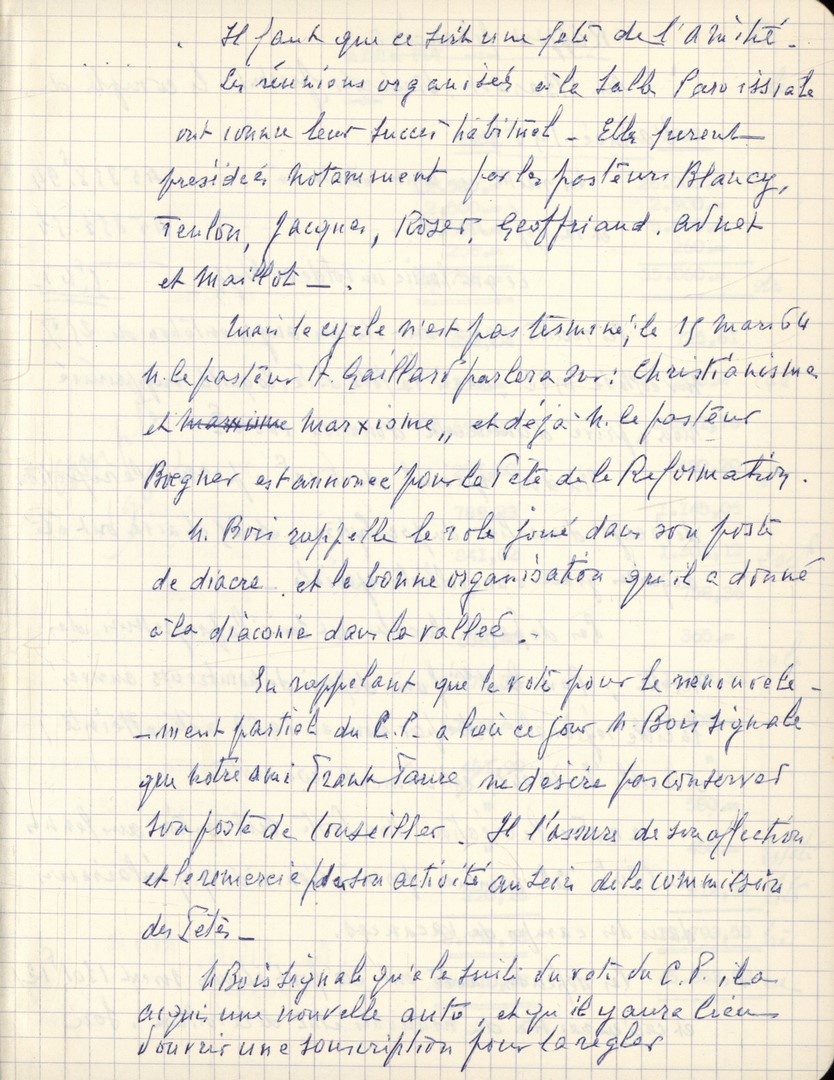 Il faut que ce soit une fête de l'amitié.
Les réunions organisées à la Salle Paroissiale
ont connu leur succès habituel _ Elles furent
présidées notamment par les pasteurs Blancy,
Jacques, Roser, Geoffriand. Adnet
et Maillot _ .
Mais le cycle n'est pas terminé, le 15 Mars 64
M. le pasteur A. Gaillard parlera sur : Christianisme
et Marxisme Marxisme ,, et déjà M. le pasteur
Boegner est annoncé pour la Fête de la Reformation.
M. Bois rappelle le role joué dans son poste
de diacre. et la bonne organisation qu'il a donné
à la diaconie dans la vallée.
En rappelant que le vote pour le renouvele-
-ment partiel du C.P. a lieu ce jour M Bois signale
que notre ami Frank Faure ne désire pas conserver
son poste de Conseiller. Il l'assure de son affection
et le remercie de son activité au sein de la commission
des Fêtes _
M Bois signale qu'à la suite du vote du C.P. il a
acquis une nouvelle auto, et qu'il y aura lieu
d'ouvrir une souscription pour la régler